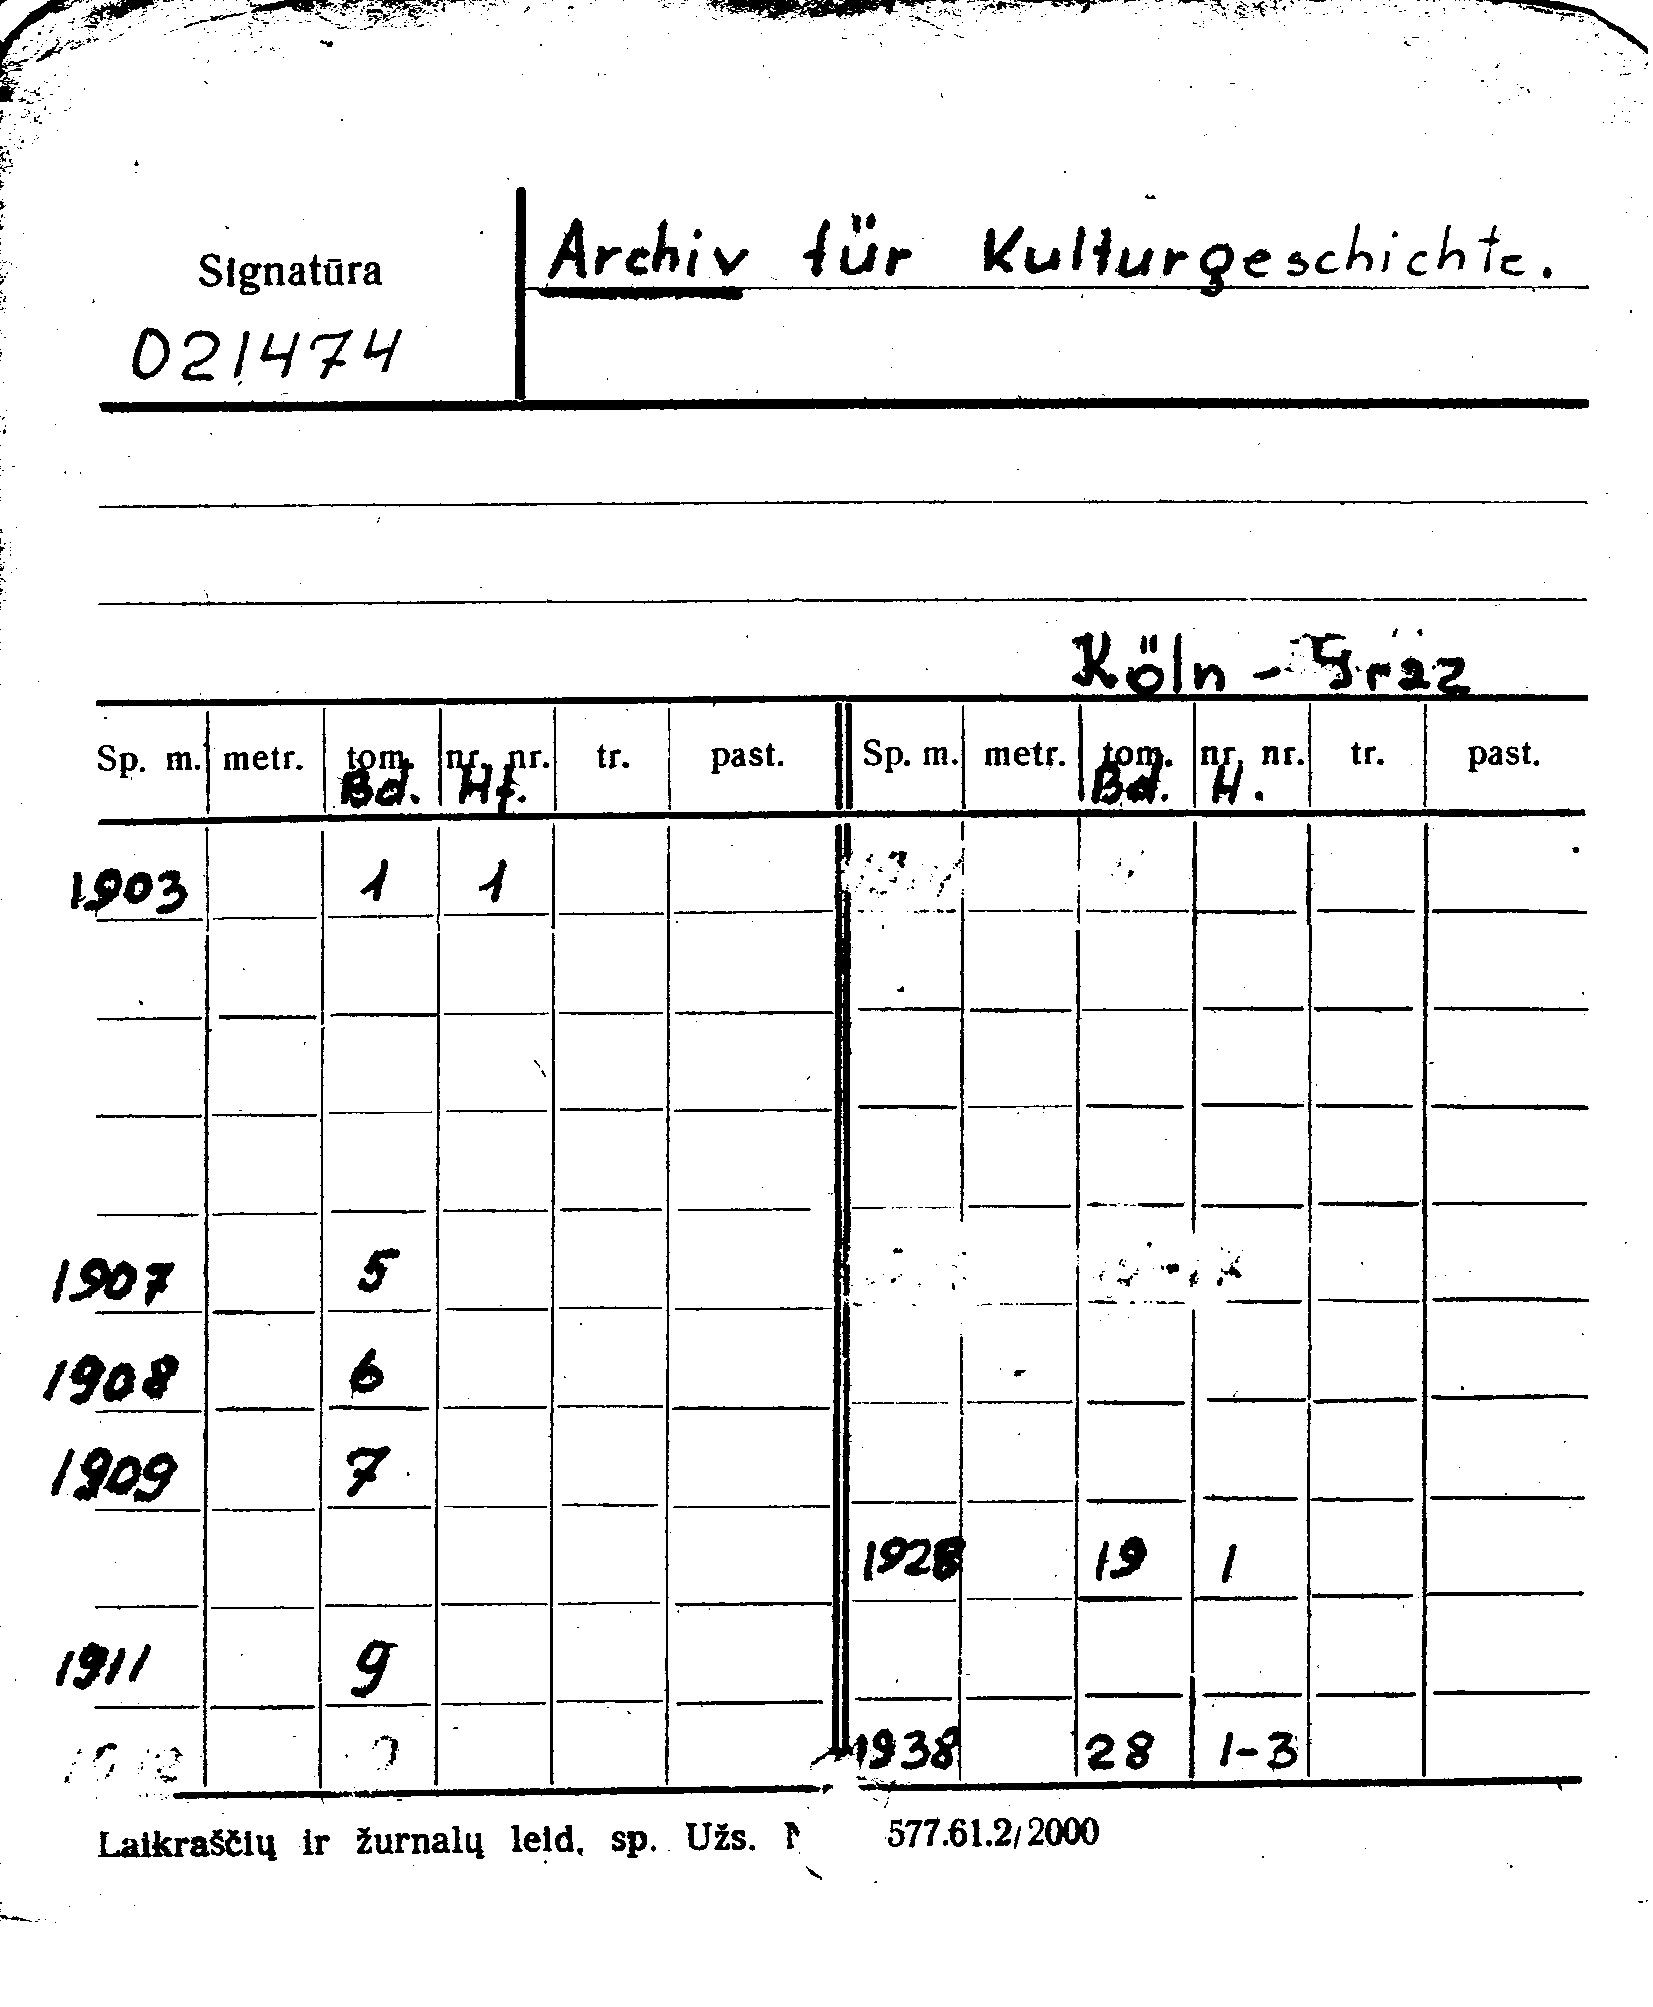 Archiv für Kulturgeschichte.
Signatūra
021474
Köln - Graz
Sp. m. metr. tom. nr. nr. tr. past. Sp. m. metr. tom. nr. nr. tr. past.
Bd. Hf. Bd. H.
1903 1 1
1907 5
1908 6
1909 7
1928 19 1
1911 9
1938 28 1-3
Laikraščių ir žurnalų leid. sp. Užs. 577.61.2/2000